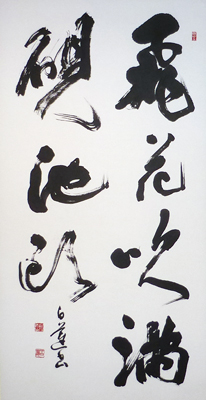 飛花吹満
硯池頭
白蓮書